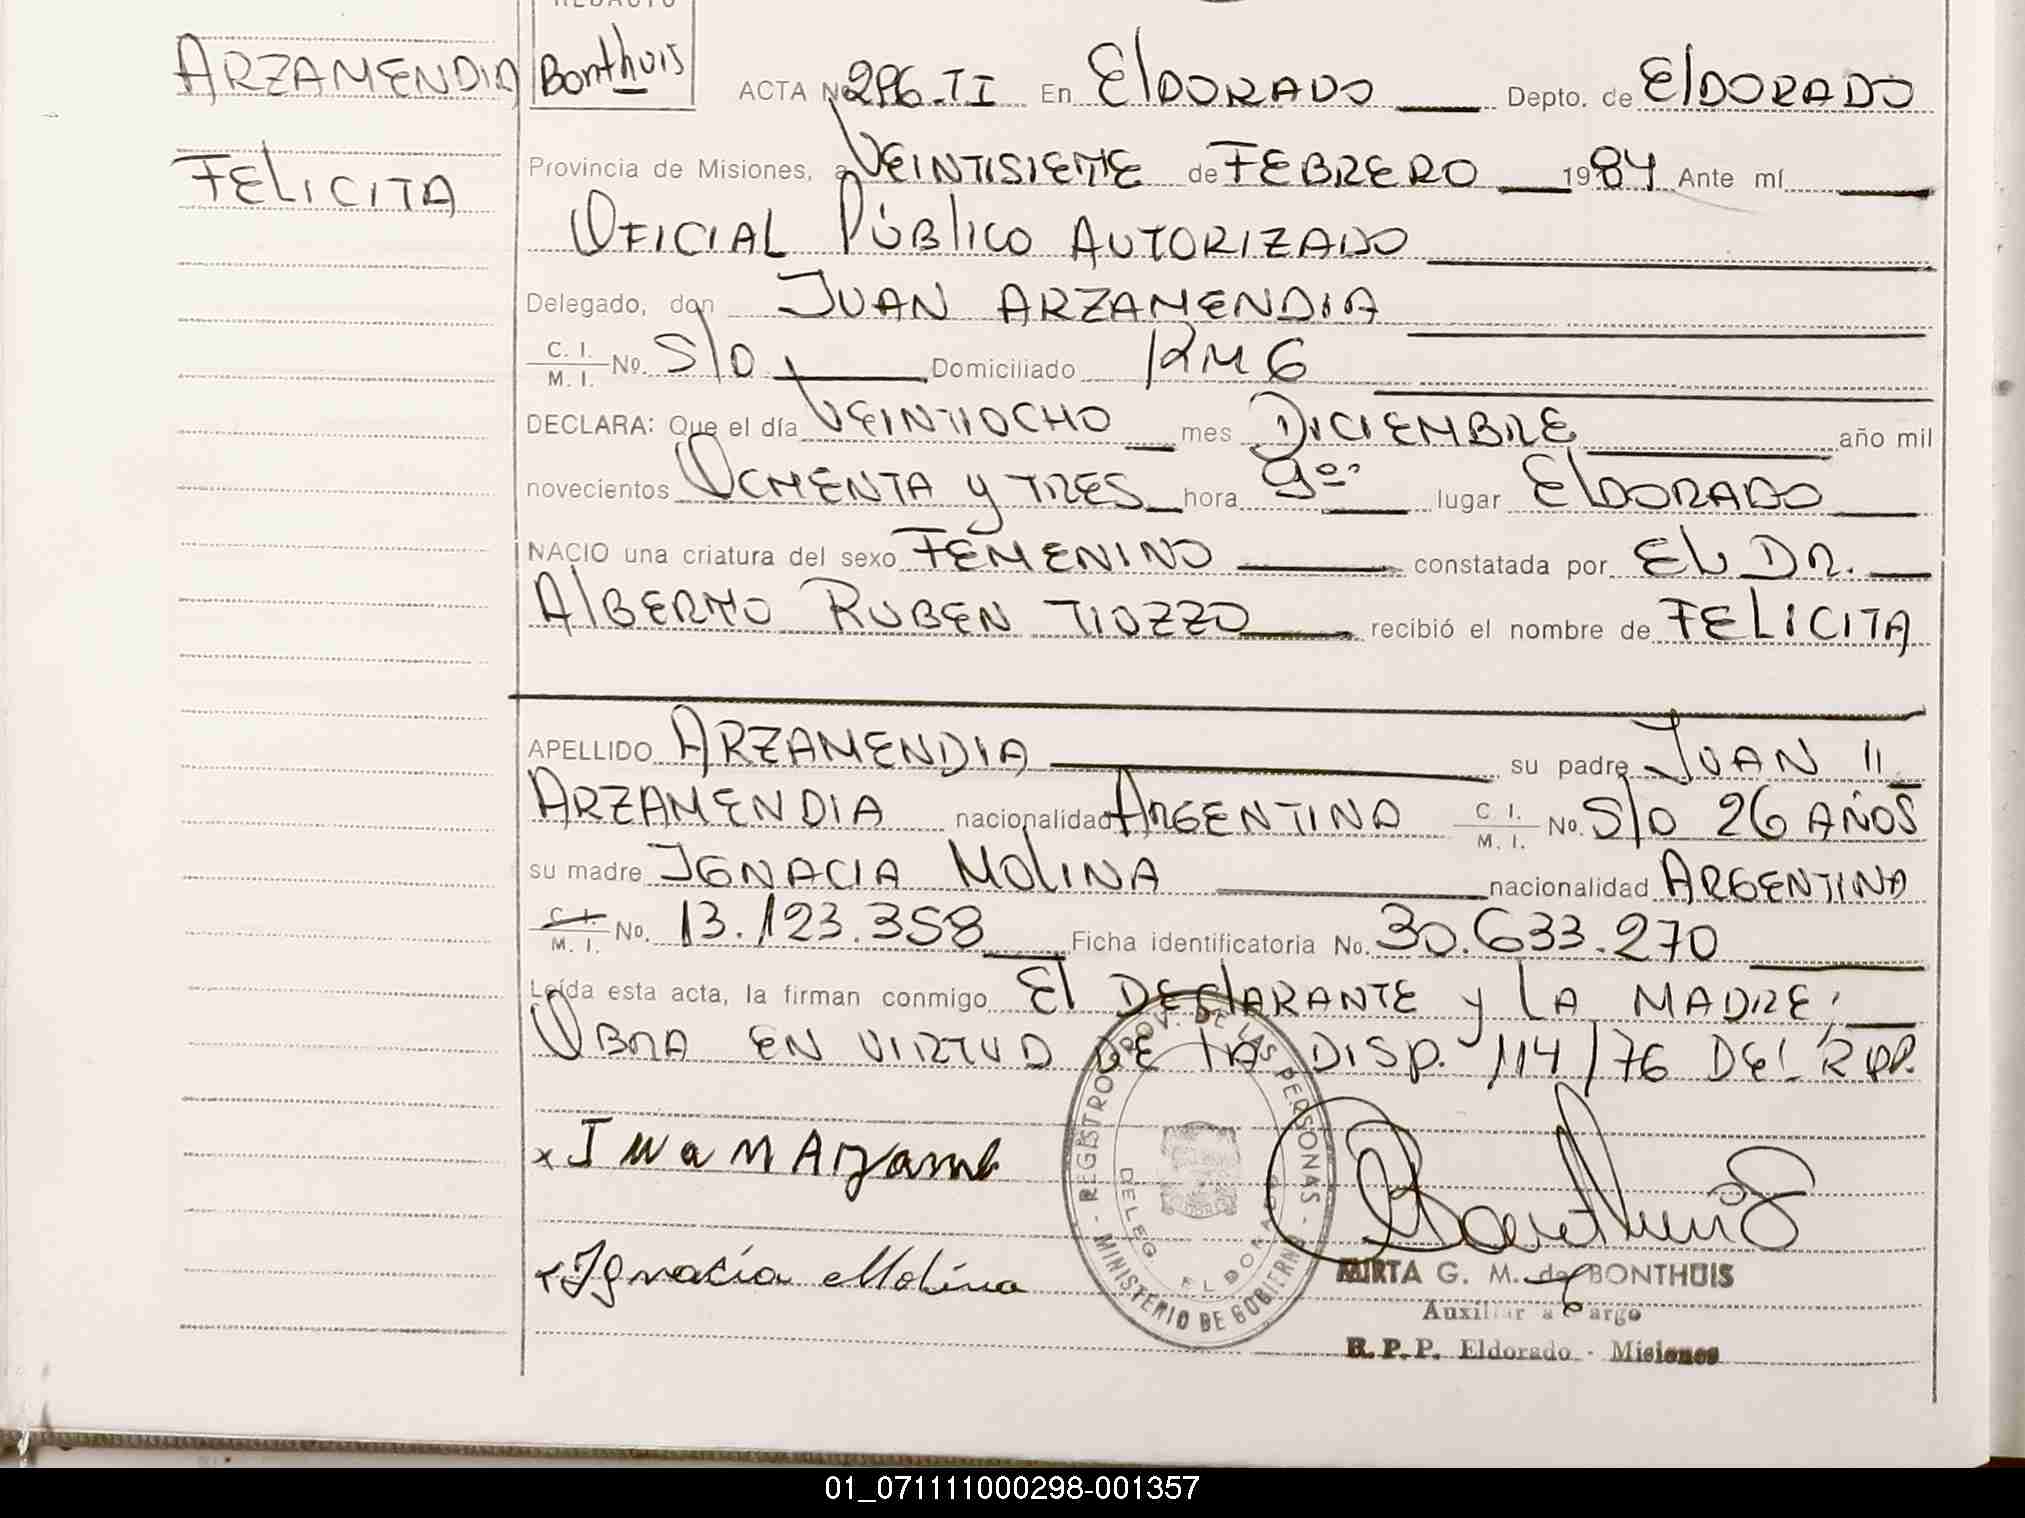 REDACTO
ARZAMENDIA Bonthuis ACTA Nº 296-TI En ElDORADO Depto. de ElDORADO
FELICITA Provincia de Misiones, a VEINTISIETE de FEBRERO 1984 Ante mí
OFICIAL PÚBlICO AUTORIZADO
Delegado, don JUAN ARZAMENDIA
C. I. / M. I. No. S/D Domiciliado KM 6
DECLARA: Que el día VEINTIOCHO mes DICIEMBRE año mil
novecientos OCHENTA y TRES hora 9ºº lugar ElDORADO
NACIO una criatura del sexo FEMENINO constatada por EL DR.
AlBERTO RUBEN TIOZZO recibió el nombre de FELICITA
APELLIDO ARZAMENDIA su padre JUAN
ARZAMENDIA nacionalidad ARGENTINA C. I. / M. I. No. S/D 26 AÑOS
su madre IGNACIA MOLINA nacionalidad ARGENTINA
C. I. / M. I. No. 13.123.358 Ficha identificatoria No. 30.633.270
Leída esta acta, la firman conmigo El DEClARANTE y LA MADRE;
OBRA EN VIRTUD DE lA DISP. 114/76 DEL RPP.
REGISTRO PROV. DE LAS PERSONAS - MINISTERIO DE GOBIERNO -
DELEG. ELDORADO
x Juan Arzame
x Ignacia Molina
Bonthuis
MIRTA G. M. de BONTHUIS
Auxiliar a Cargo
R. P. P. Eldorado - Misiones
01_071111000298-001357